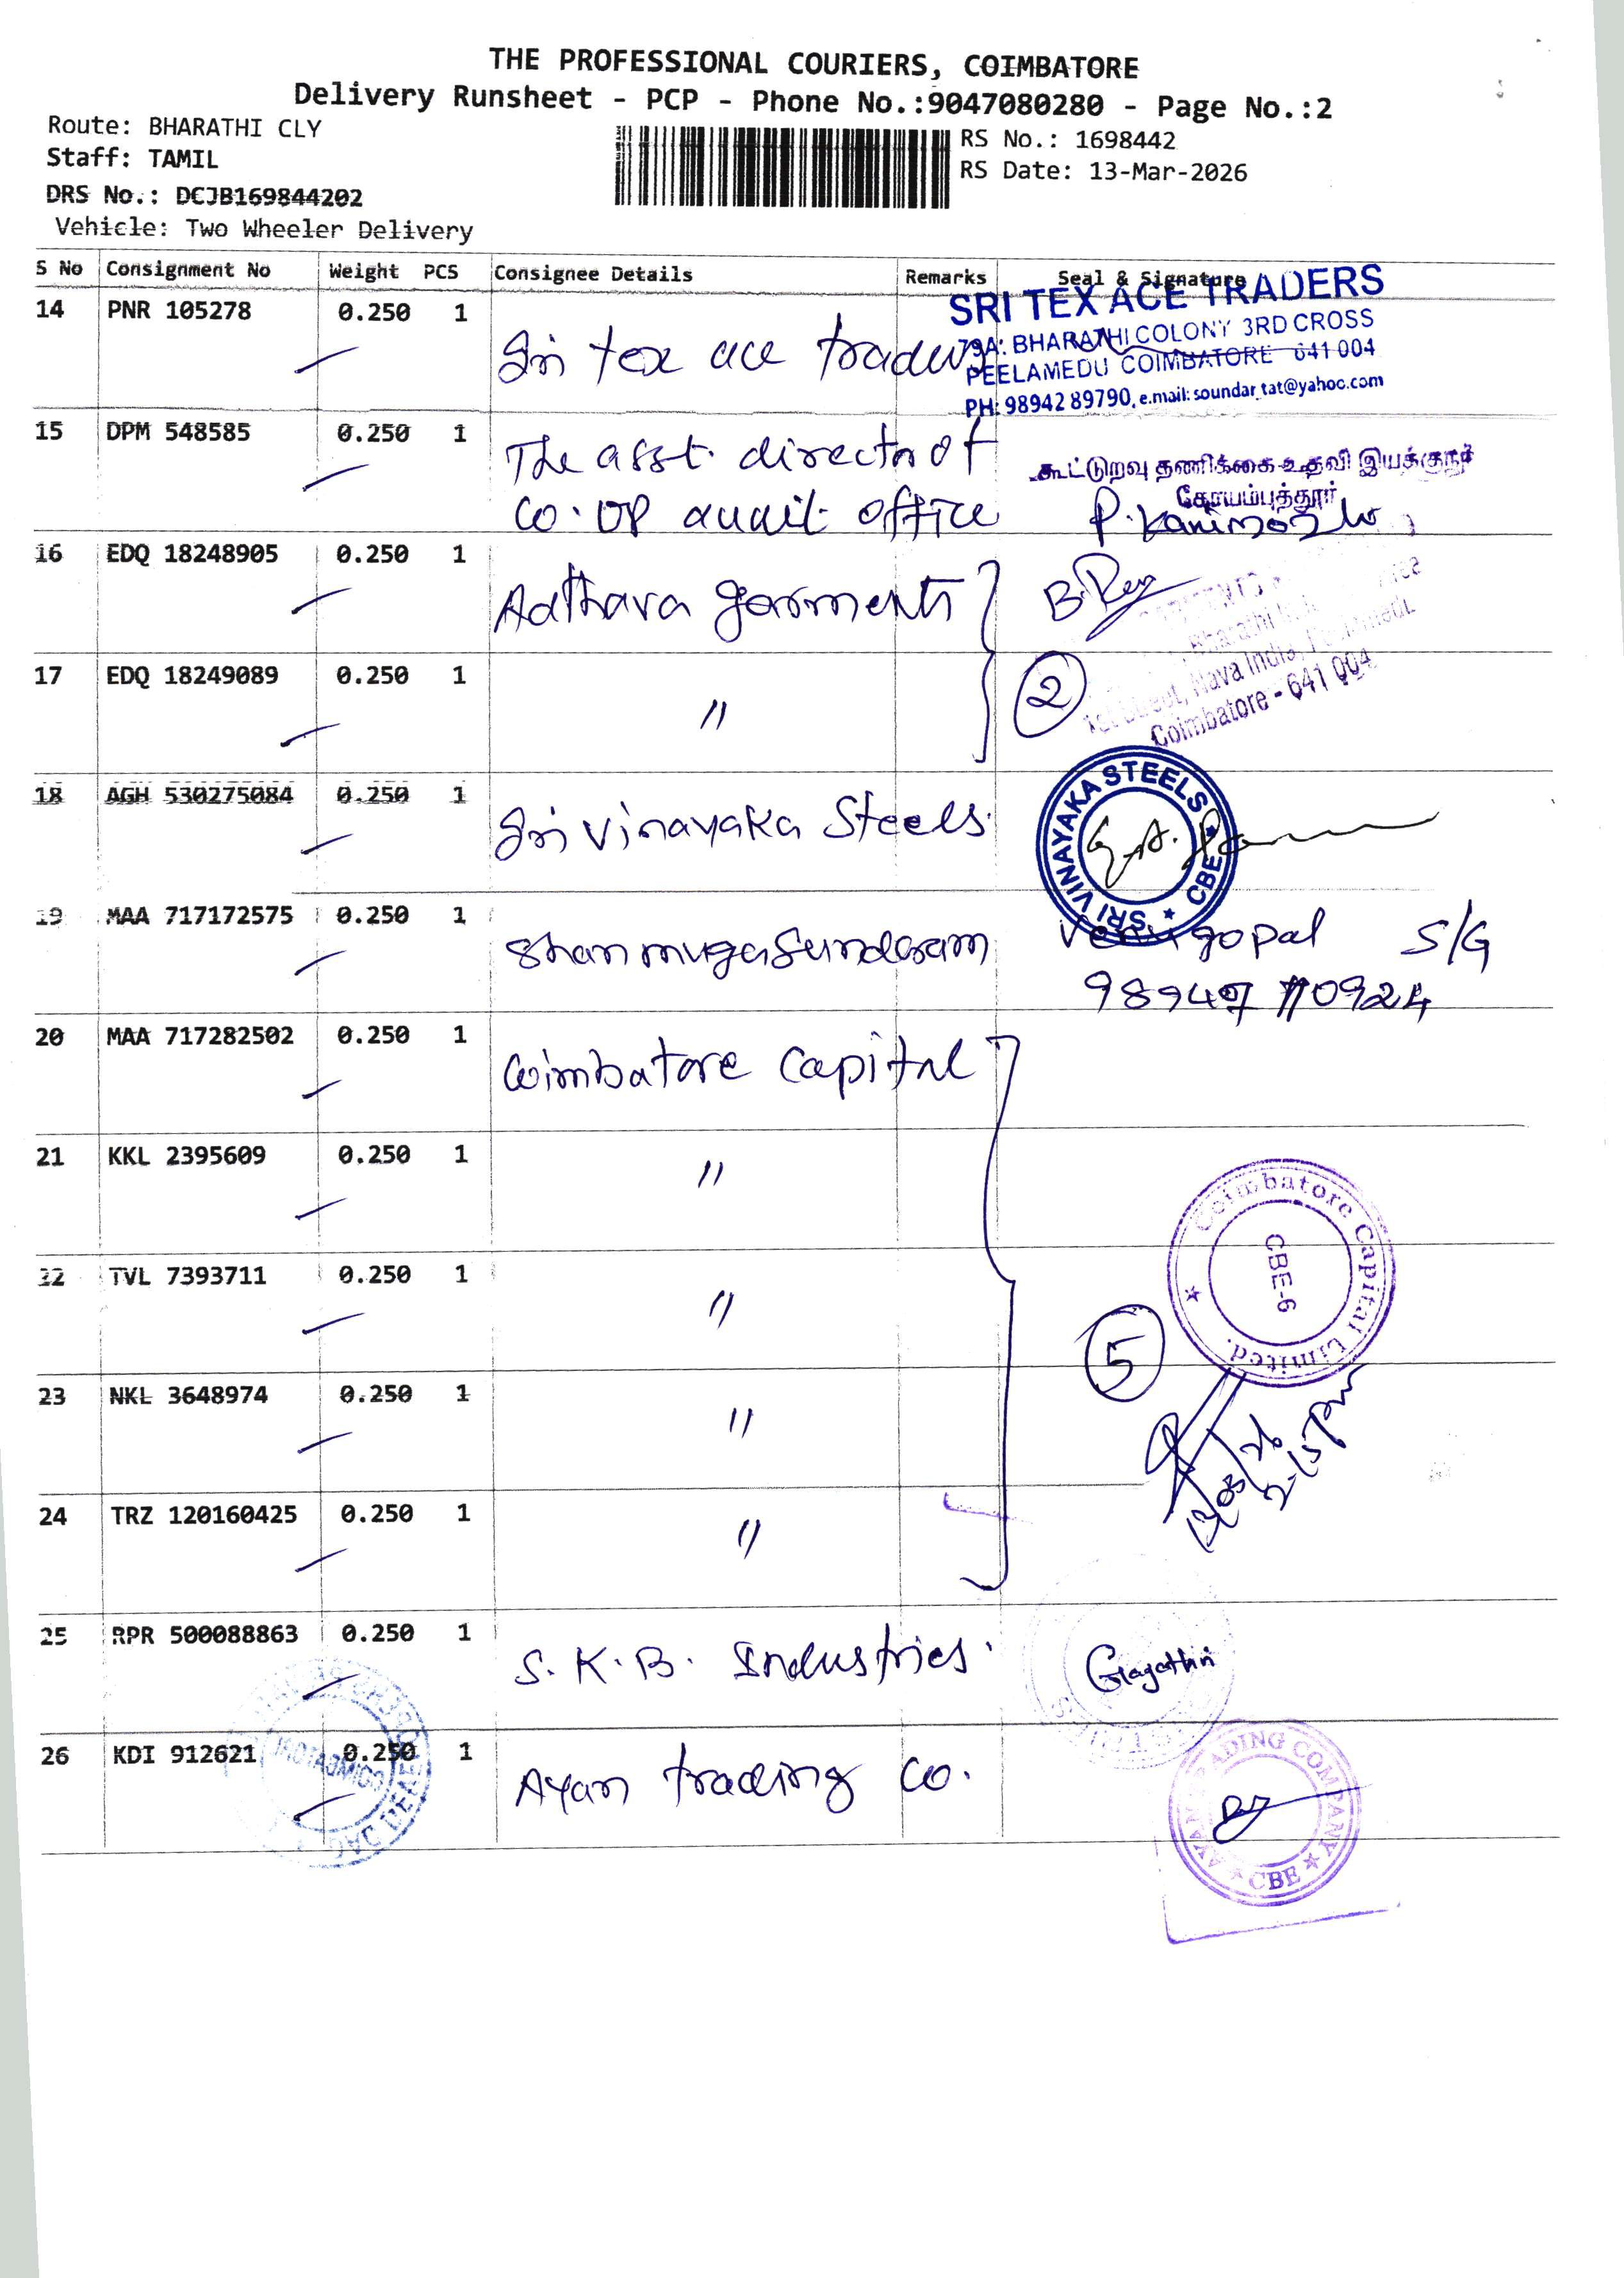 THE PROFESSIONAL COURIERS, COIMBATORE
Delivery Runsheet - PCP - Phone No.:9047080280 - Page No.:2
Route: BHARATHI CLY
RS No.: 1698442
Staff: TAMIL
RS Date: 13-Mar-2026
DRS No.: DCJB169844202
Vehicle: Two Wheeler Delivery
S No Consignment No Weight PCS Consignee Details Remarks Seal & Signature
14 PNR 105278 0.250 1
Sri tex ace traders
SRI TEX ACE TRADERS
79A. BHARATHI COLONY 3RD CROSS
PEELAMEDU COIMBATORE 641 004
PH: 98942 89790, e.mail: soundar_tat@yahoo.com
15 DPM 548585 0.250 1
The asst. director of
co.op audit office
கூட்டுறவு தணிக்கை உதவி இயக்குநர்
கோயம்புத்தூர்
16 EDQ 18248905 0.250 1
Adthava garments
17 EDQ 18249089 0.250 1
"
2
Nava India,
Coimbatore - 641 004
18 AGH 530275084 0.250 1
Sri Vinayaka Steels.
SRI VINAYAKA STEELS ★ CBE ★
19 MAA 717172575 0.250 1
Shanmugasundaram
Venugopal S/G
20 MAA 717282502 0.250 1
Coimbatore Capital
21 KKL 2395609 0.250 1
"
22 TVL 7393711 0.250 1
"
Coimbatore Capital Limited. ★
CBE-6
5
23 NKL 3648974 0.250 1
"
2-15pm
24 TRZ 120160425 0.250 1
"
25 RPR 500088863 0.250 1
S.K.B. Industries.
Gayathri
26 KDI 912621 0.250 1
Ayan trading co.
AYAN TRADING COMPANY ★ CBE ★